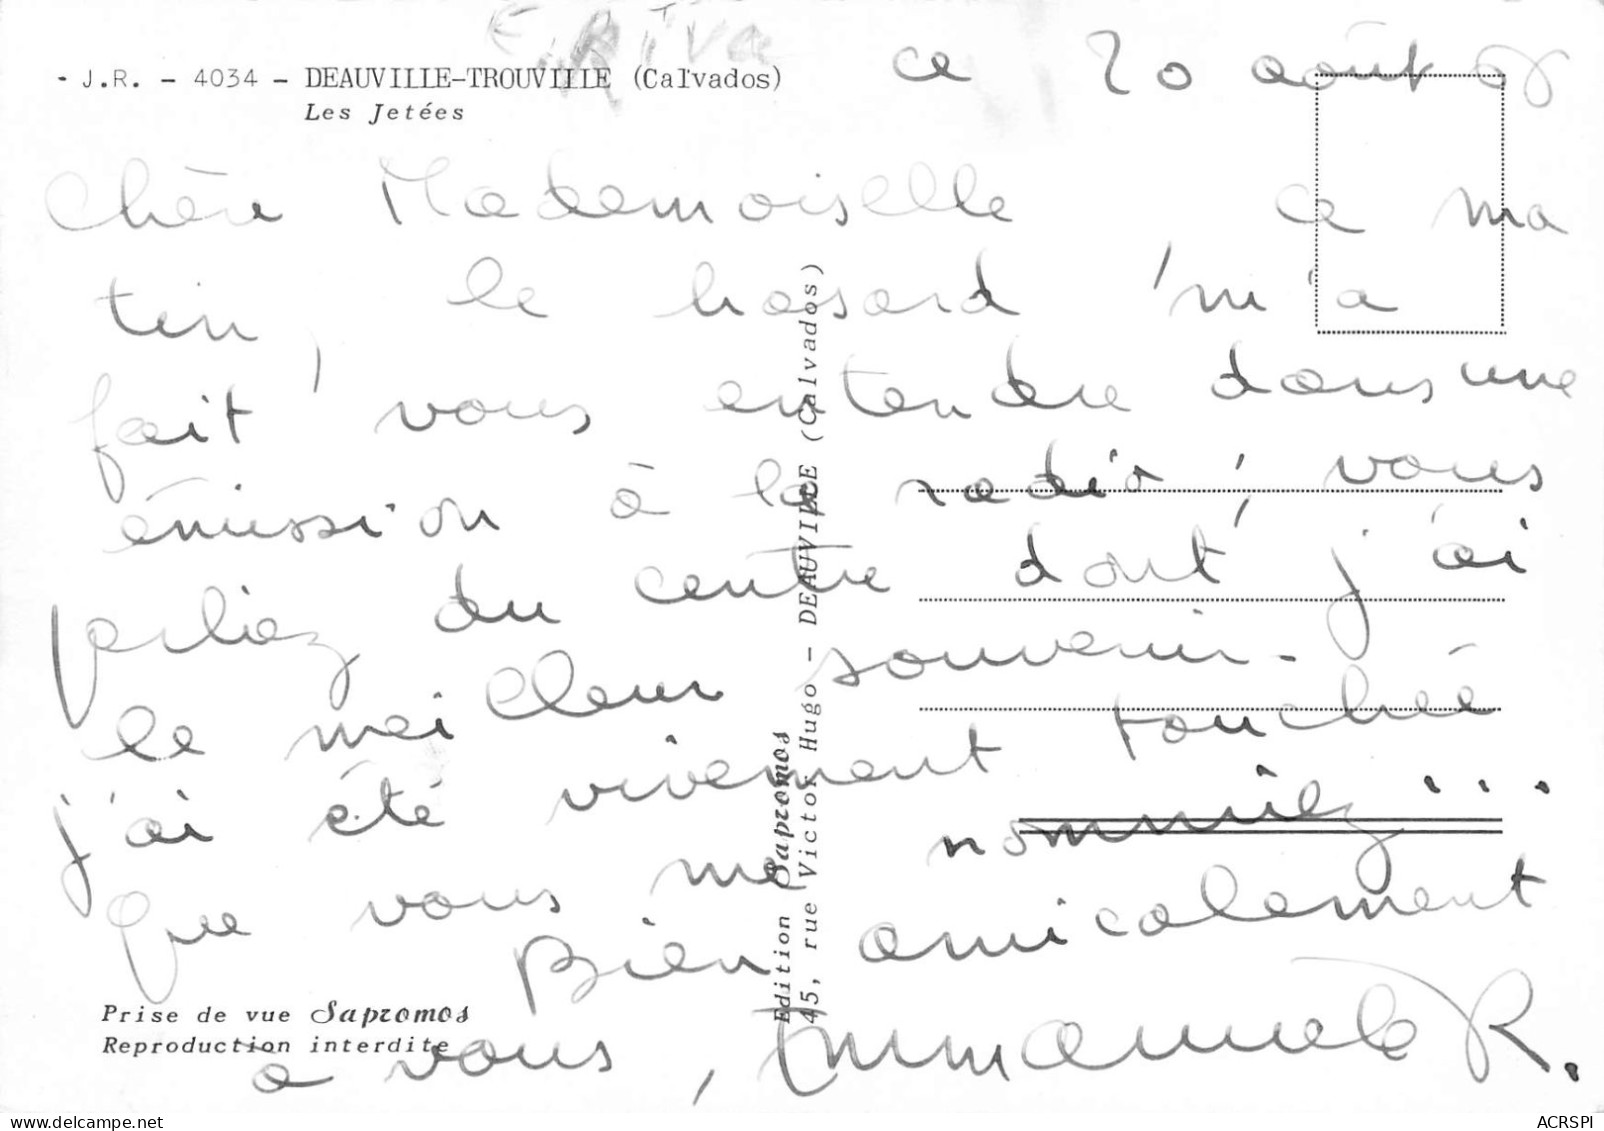 E. Riva
- J.R. - 4034 - DEAUVILLE-TROUVILLE (Calvados)
Les Jetées
ce 20 août 68
Chère Mademoiselle ce ma
tin, le hasard m'a
fait vous entendre dans une
émission à la radio, vous
parliez du centre dont j'ai
le meilleur souvenir -
j'ai été vivement touchée
que vous me nommiez...
Bien amicalement
à vous, Emmanuele R.
Prise de vue Sapromos
Reproduction interdite
Edition Sapromos
45, rue Victor Hugo - DEAUVILLE (Calvados)
ACRSPI